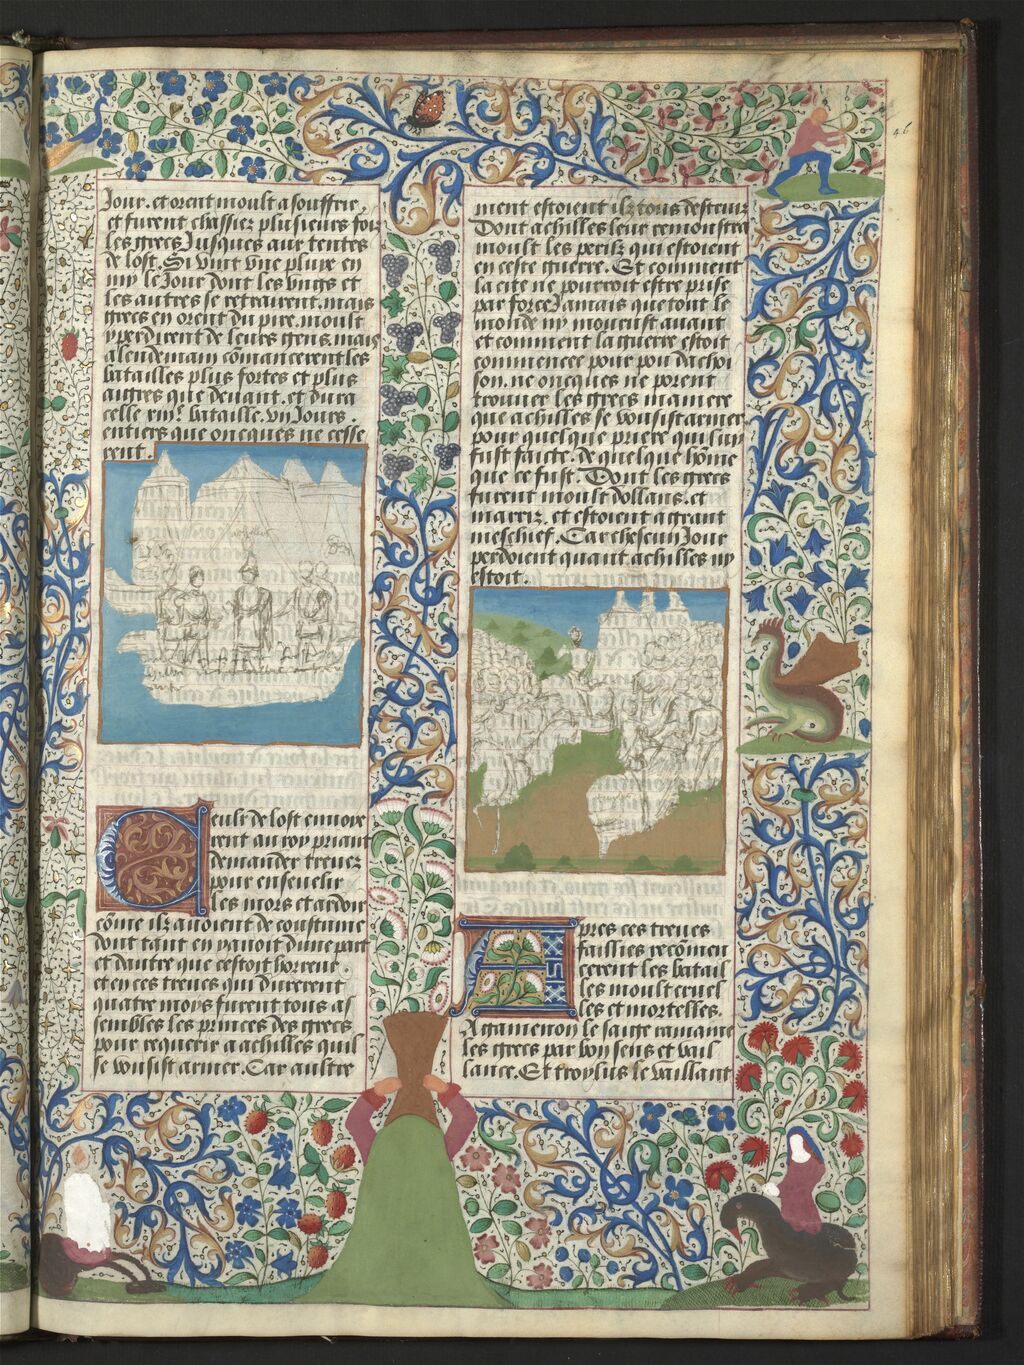 46
Jour. et orent moult a souffrir,
et furent chassiez plusieurs foiz
les grecz Jusques aux tentes
de lost. Si vint vne pluye en
my le Jour dont les vngs et
les autres se retrairent. mais
grecz en orent du pire. moult
y perdirent de leurs gens. mais
a lendemain cōmancerent les
batailles plus fortes et plus
aigres que deuant. et dura
celle xiiij.e bataille. vij Jours.
entiers que oncques ne cesse
rent.
Ceulx de lost enuoye
rent au roy priant
demander treues
pour enseuelir
les mors et ardoir
cōme ilz auoient de coustume
dont tant en y auoit dune part
et dautre que cestoit horreur.
et en ces treues qui durerent
quatre moys furent tous as
sembles les princes des grecz
pour requerir a achilles quil
se voulsist armer. Car aultre
ment estoient ilz tous destruiz
Dont achilles leur remonstra
moult les perilz qui estoient
en ceste guerre. Et comment
la cite ne pourroit estre prise
par force Jamais que tout le
monde ny mourust auant
et comment la guerre estoit
commencee pour pou dachoi
son. ne oncques ne porent
trouuer les grecz maniere
que achilles se voulsist armer
pour quelque priere qui luy
fust faicte. de quelque hōme
que ce fust. Dont les grecz
furent moult dollans. et
marriz. et estoient a grant
meschief. Car chescun Jour
perdoient quant achilles ny
estoit.
Apres ces treues
faillies recōmen
cerent les batail
les moult cruel
les et mortelles.
Agamenon le saige ramaine
les grecz par bon sens et vail
lance. Et troylus le vaillant